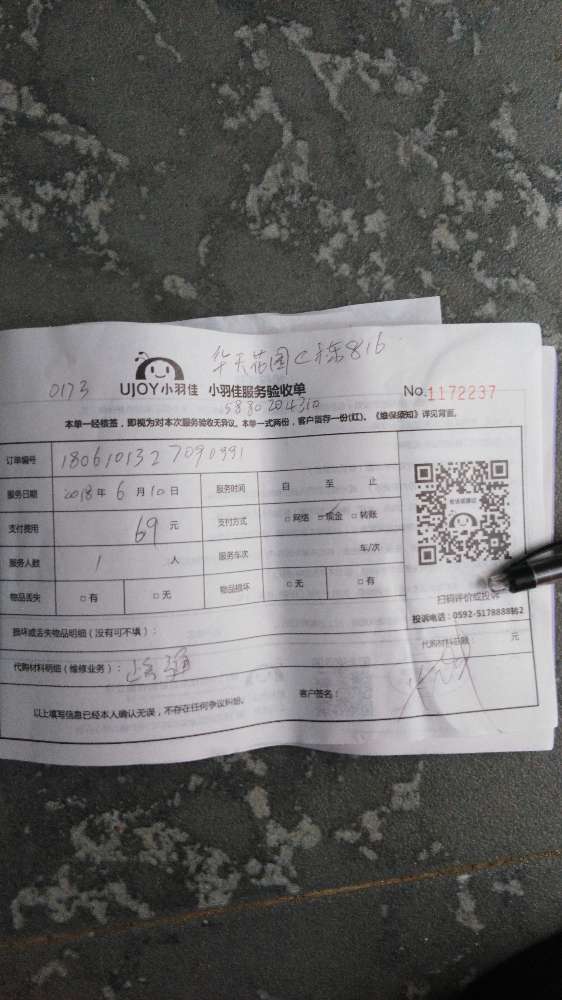 华天花园C栋816
0173 UJOY小羽佳 小羽佳服务验收单 No.1172237
本单一经核签，即视为对本次服务验收无异议。本单一式两份，客户留存一份(红)。《维保须知》详见背面。
订单编号 180610132 7090991
服务日期 2018年 6月 10日 服务时间 自 至 止
支付费用 69 元 支付方式 □网络 □现金 □转账
服务人数 1 人 服务车次 车/次
物品丢失 □有 □无 物品损坏 □无 □有
扫码评价或投诉
投诉电话：0592-5178888转2
损坏或丢失物品明细（没有可不填）：
代购材料金额 元
代购材料明细（维修业务）：
以上填写信息已经本人确认无误，不存在任何争议纠纷。 客户签名：